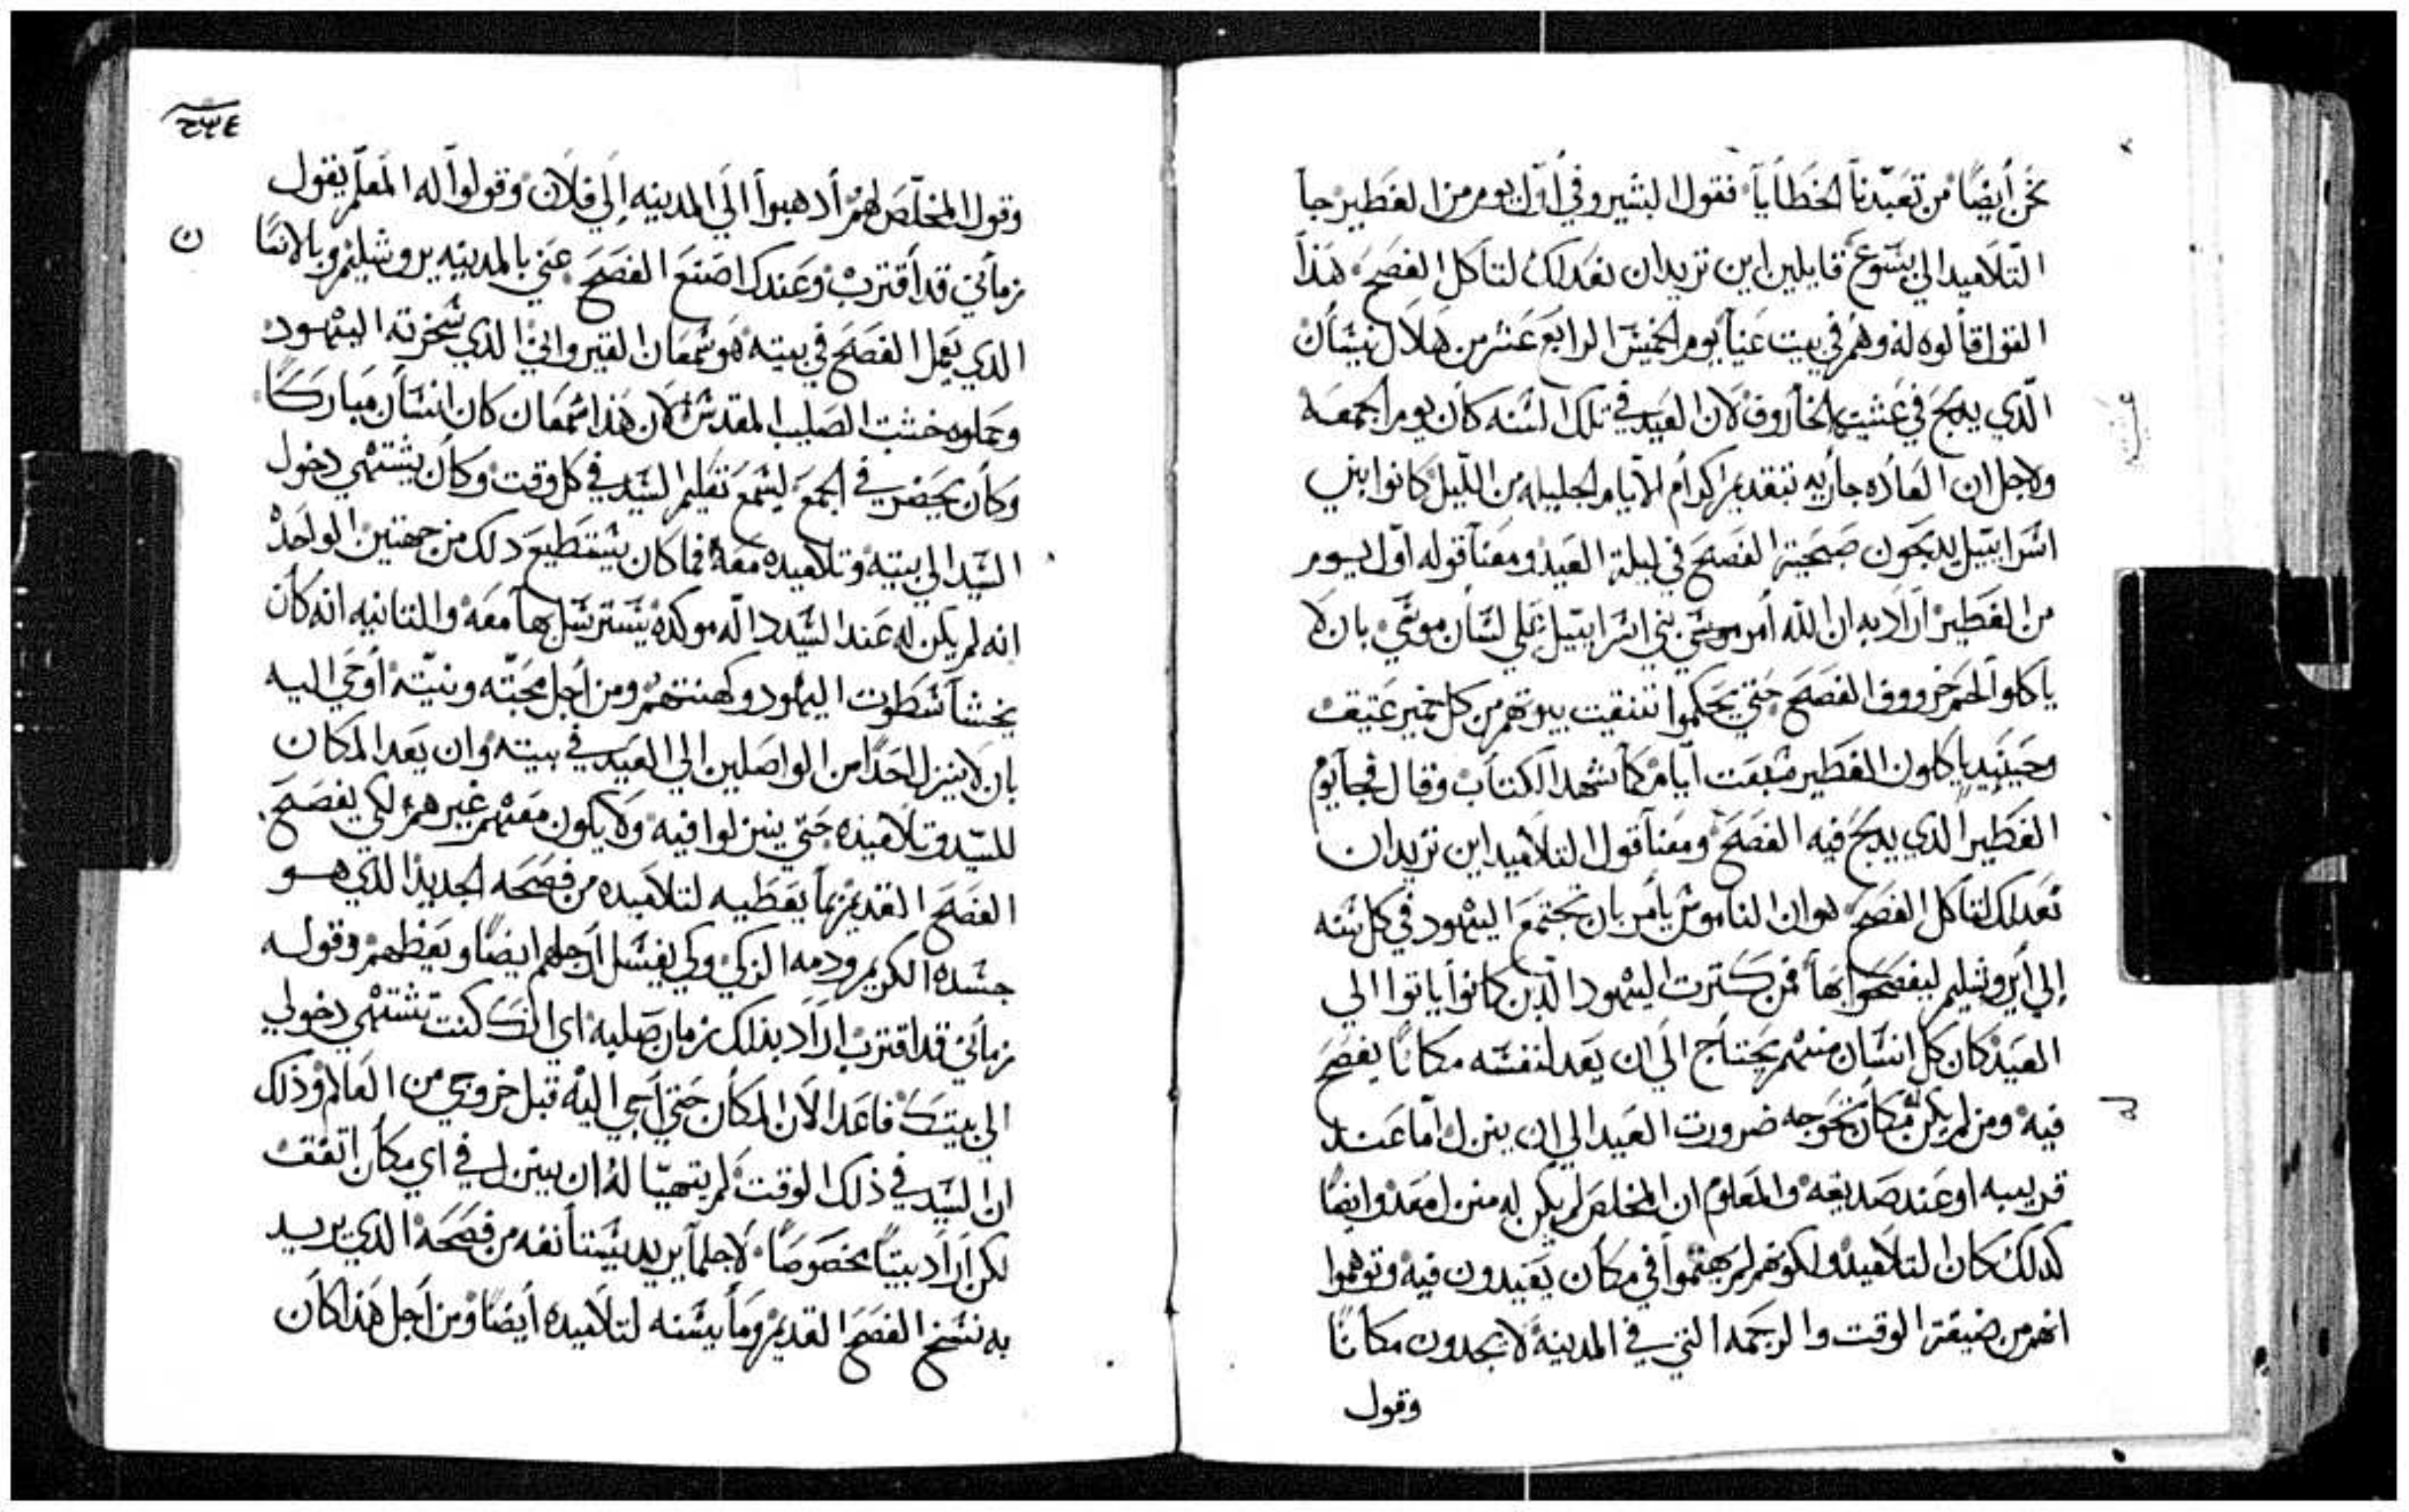 نحن أيضًا من تعبدنا الخطايا فقول البشير وفي أول يوم من الفطير جا
التلاميد الي يسوع قايلين اين تريدان نعدلك لتاكل الفصح هذا
القول قالوه له وهم في بيت عنيا يوم الخميس الرابع عشر من هلال نيسان
الّدي يدبح في عشيته الخاروف لان العيد في تلك السنه كان يوم الجمعه
ولاجل ان العاده جاريه بتقديم اكرام الايام الجليله من الليل كانوا بني
اسراييل يدبحون ضحية الفصح في ليلة العيد ومعنا قوله اول يوم
من الفطير اراد به ان الله أمر موسي بني اسراييل علي لسان موسي بان لا
ياكلوا لحم خرووف الفصح حتي يحكموا تنقيت بيوتهم من كل خمير عتيقت
وحينيد ياكلون الفطير سبعت ايام كما شهد الكتاب وقال فجا يوم
الفطير الدي يدبح فيه الفصح ومعنا قول التلاميد اين تريدان
نعدلك لتاكل الفصح هو ان الناموس يامر بان تجتمع اليهود في كل سنه
إلي أيروشليم ليفصحوا بها فمن كترت اليهود الدين كانوا ياتوا الي
العيد كان كل انسان منهم يحتاج الي ان يعد لنفسه مكانًا يفصح
فيه ومن لم يكن له مكان تحوجه ضرورت العيد الي ان ينزل اما عند
قريبه او عند صديقه والمعلوم ان المخلص لم يكن له منزل معد وايضًا
كدلك كان التلاميد ولكونهم لم يهتموا في مكان يعيدون فيه وتوهموا
انهم من ضيقة الوقت والرحمه التي في المدينه لا يجدون مكانًا
وقول
وقول المخلّص لهم أدهبوا الَي المدينه اِلي فلان وقولوا له المعلم يقول
زماني قد اقترب وعندك اصنع الفصح عني بالمدينه يروشليم وبالانسان
الدي يعمل الفصح في بيته هو سمعان القيرواني الدي سخرته اليهود
وحملوه خشبت الصليب المقدس لان هذا سمعان كان انسان مباركًا
وكان يحضر في الجمع ليسمع تعليم السيد في كل وقت وكان يشتهي دخول
السيد الي بيته وتلاميده معه فما كان يستطيع دلك من جهتين الواحد
انه لم يكن له عند السيد داله موكده يسترسل بها معه والتانيه انه كان
يخشا سطوت اليهود وكهنتهم ومن أجل محبته ونيته أوحي اليه
بان لا ينزل احدًا من الواصلين الي العيد في بيته وان يعد المكان
للسيد وتلاميذه حتي ينزلوا فيه ولا يكون معهم غيرهم لكي يفصح
الفصح القديم بما يعطيه لتلاميده من فصحه الجديد الدي هو
جسده الكريم ودمه الزكي وكي يغسل أرجلهم ايضًا ويعظهم وقوله
زماني قد اقترب اراد بذلك زمان صلبه اي انك كنت تشتهي دخولي
الي بيتك فاعد الان المكان حتي أجي اليه قبل خروجي من العالم وذلك
ان السيد في ذلك الوقت لم يتهيّا له ان ينزل في اي مكان اتفقت
لكن اراد بيتًا مخصوصًا لاجل ما يريد يستانفه من فصحه الذي يريد
به نسخ الفصح القديم وما يسنه لتلاميده أيضًا ومن أجل هذا كان